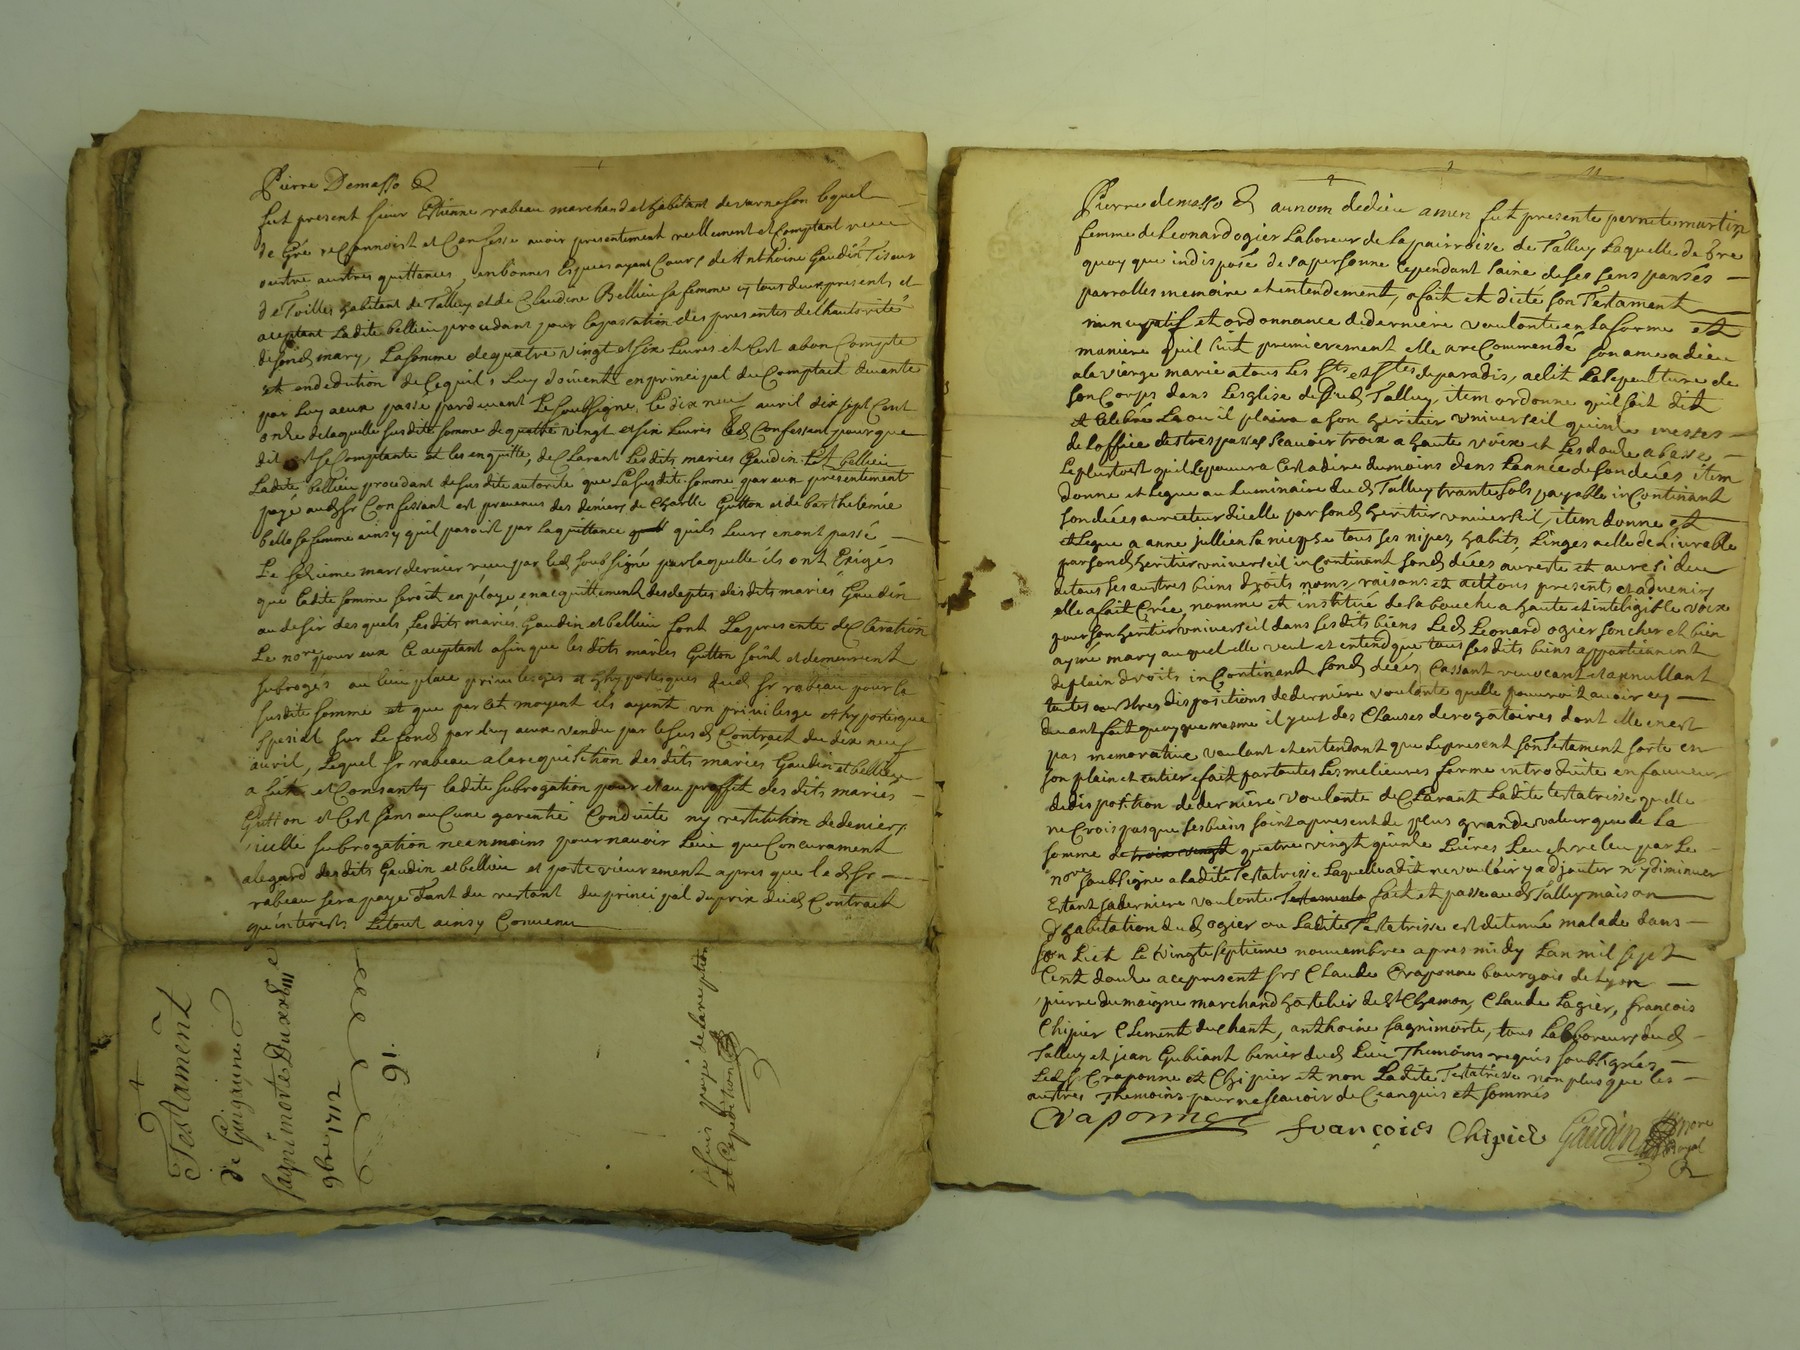 Pierre Demasso &
fut present sieur Estienne rabeau marchand et habitant de varneson lequel
de Gré reConnoist et Confesse avoir presentement reellement et Comptant receu
outre autres quittances, en bonnes Especes ayant Cours de Anthoine Gaudin Tisseur
de Toilles habitant de Talluy et de Claudine Bellieu sa femme cy tous deux presents et
aceptant Ladite bellieu procedant pour la passation des presentes de l'hautorité
dudit mary, La somme de quatre vingt et six Livres et C'est a bon Compte
et en dedution de Ce quils Luy doivent en principal du Comptract de vante
par Luy a eux passé pardevant Le Soubsigne, Le dix neuf avril dix sept Cent
onze de laquelle susdite somme de quatre vingt et six Livres Led Confessant pour que
dit est se Comptante et les en quitte, deClarant Lesdits maries Gaudin et bellieu
Ladite bellieu procedant de susdite autorité que La susdite somme par eux presentement
payé aud Sr Confessant est provenus des deniers de Charlle Gutton et de barthelemie
belle sa femme ainsy quil paroist par la quittance quils Leurs en ont passé
Le sezieme mars dernier receu par led soubsigné par laquelle ils ont Exigés
que ladite somme seroit employé en acquittement des deptes desdits mariés Gaudin
au desir des quels Lesdits mariés Gaudin et bellieu font La presente deClaration
Le nore pour eux Ce aceptant afin que les dits mariés Gutton soint et demeurent
subrogés au lieu place privileges et hypoteques dud Sr rabeau pour la
susdite somme et que par Cet moyent ils ayent un privilesge et hypoteique
spesial sur Le fond par luy a eux vendu par le susd Contract du dix neuf
avril, Lequel Sr rabeau a la requisition des dits mariés Gaudin et bellieu
a fait et Consanty ladite subrogation pour et au proffit des dits mariés
Gutton et C'est sans auCune garentie Conduite ny restitution de deniers
icelle subrogation neanmoins pour n'avoir Lieu que Concurament
a legard desdits Gaudin et bellieu et posterieurement apres que le d Sr
rabeau sera payé Tant du restant du principal du prix dud Contract
qu'interests Le tout ainsy Convenu
Testament
de Guigainne
sagnimorte Du xxbiii e
9bre 1712
16.
Je suis payé de la reception
et Expedition
Pierre demasso & au nom de dieu amen fut presente pernete martin
femme de Leonard ogier Laboreur de La pairroisse de Talluy Laquelle de Gre
quoy que indisposé de sa personne Cependant saine de ses sens pansés
parrolles memoire et entendement, a fait et dicté son Testament
nuncupatif et ordonnance de derniere voulonte en La forme et
maniere quil suit premierement elle a reCommendé son ame a dieu
a la vierge marie a tous Les Sts et Stes de paradis, a elit La sepulture de
son Corps dans L'esglise dud Talluy, item ordonne quil soit dit
et Celebré La ou il plaira a son heritier universeil quinze messes
de l'office des trespassés sçavoir troix a haute voix et Les douze a basse
Le plustost quil Ce pourra C'est a dire du moins dans L'année de son decés item
donne et Legue au Luminaire dud Talluy trante sols payable inContinant
son decés au recteur d'icelle par sond heritier universeil, item donne et
et Legue a anne jullien sa niepse tous ses nipes, habits, Linges a elle de Livrable
par sond heritier universeil inContinant sond decés au reste et au residu
de tous ses autres biens droits noms raisons et actions presents et advenirs
elle a fait Crée, nommé et institué de sa bouche a haute et inteligible voix
pour son heritier universeil dans ses dits biens Led Leonard ogier son cher et bien
aymé mary au quel elle veut et entend que tous ses dits biens appartiennent
de plain droits inContinant sond decés Cassant revocant et annullant
toutes autres dispositions de derniere voulonte quelle pourroit avoir cy
devant fait quoy que mesme il y eut des Clauses derogatoires dont elle n'est
pas memorative voulant et entendant que Le present son Testament sorte en
son plain et entier efait par toutes Les melieures forme introduite en faveur
de disposition de derniere voulonte deClarant Ladite testatrisse quelle
ne Crois pas que ses biens soint a present de plus grande valeur que de La
somme de troix vingt quatre vingt quinze Livres Leu et releu par Le
nore soubsigne a Ladite Testatrisse Laquelle a dit ne vouloir y adjouter ny diminuer
Estant sa derniere voulonte Testamento fait et passé aud Talluy maison
d'habitation dud ogier ou Ladite Testatrisse est detenue malade dans
son Lict Le vingt septieme novembre apres midy L'an mil sept
Cent douze a ce present Srs Claude Craponne bourgois de Lyon
pierre dumaigne marchand hostelier de St Chamon, Claude Lagier, françois
Chipier Clement duchant, anthoine sagnimorte, tous Labboreurs dud
Talluy et jean Gubiant benier dud Lieu Themoins requis soubsignés
Led Sr Craponne et Chipier et non Ladite Testatrisse non plus que les
autres Themoins pour ne sçavoir de Ce enquis et sommés
Craponne
françois Chipier Gaudin nore Royal